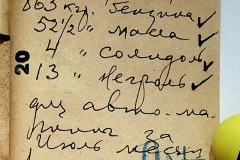 863 кгр. бензина
52½ " масла
4 " солидол
13 " негроль
для авто-ма-
шины за
Июль месяц
20